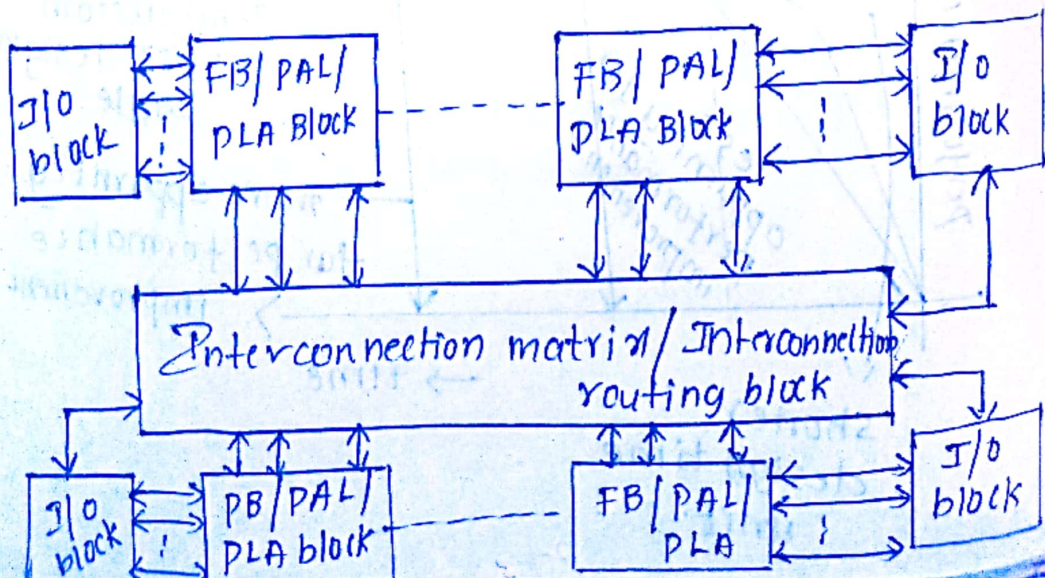 I/O
block
FB/ PAL/
PLA Block
FB/ PAL/
PLA Block
I/O
block
Interconnection matrix/ Interconnection
routing block
I/O
block
PB/PAL/
PLA block
FB/PAL/
PLA
I/O
block